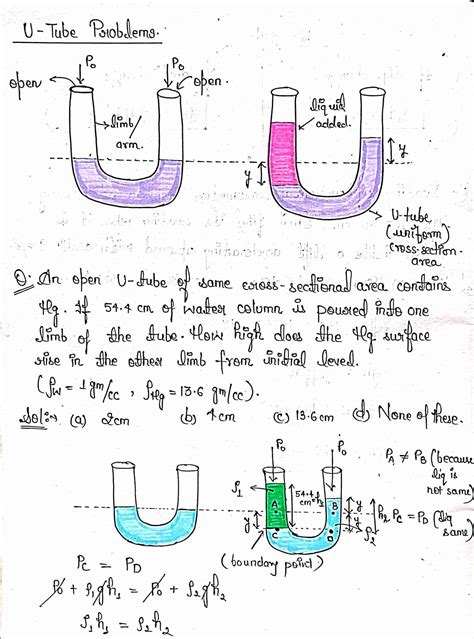 U-Tube Problems.
P₀ P₀
open open.
limb/
arm.
liquid
added.
y
y
U-tube
(uniform)
cross-section
area
Q. An open U-tube of same cross-sectional area contains
Hg. If 54.4 cm of water column is poured into one
limb of the tube. How high does the Hg surface
rise in the other limb from initial level.
(ρw = 1 gm/cc , ρHg = 13.6 gm/cc).
Sol:- (a) 2cm (b) 4cm (c) 13.6cm (d) None of these.
P₀ P₀
P_A ≠ P_B (because
liq is
not same)
ρ₁
A
54.4
cm=h₁
B
y
y
y
h₂
P_C = P_D (liq
same)
C
D
ρ₂
(boundary point)
P_C = P_D
P₀ + ρ₁gh₁ = P₀ + ρ₂gh₂
ρ₁h₁ = ρ₂h₂